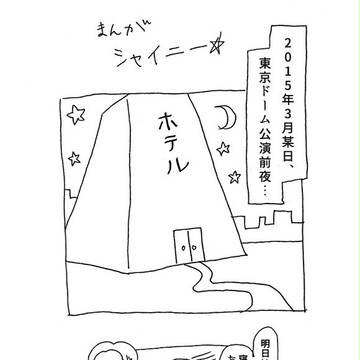 まんが
シャイニー☆
2015年3月某日、
東京ドーム公演前夜…
ホテル
明日